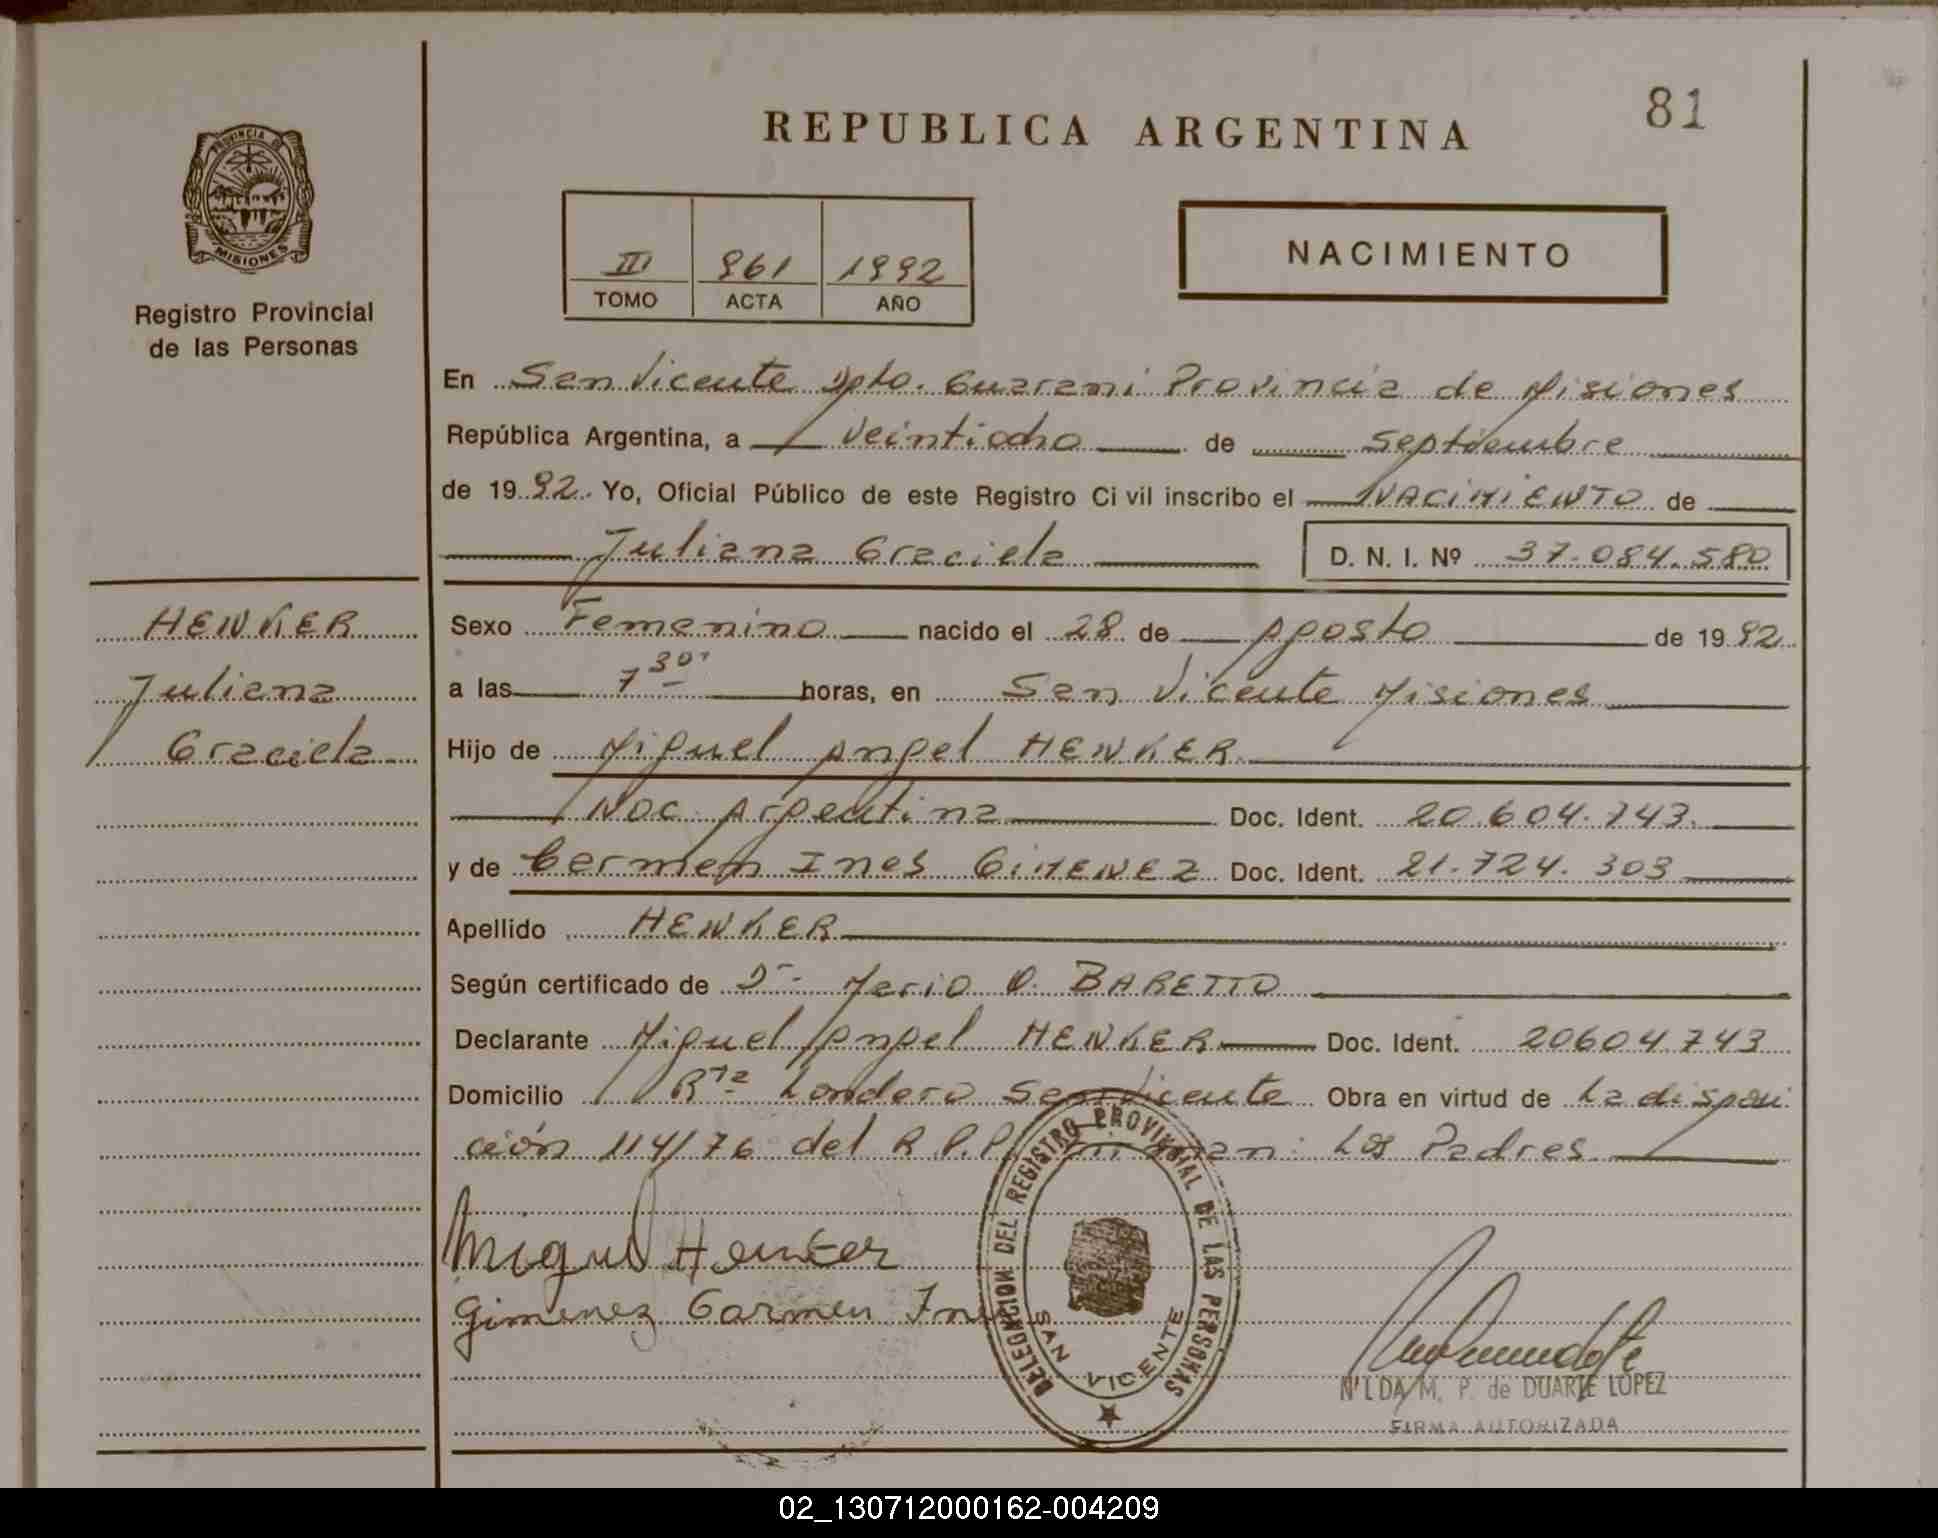 81
REPUBLICA ARGENTINA
PROVINCIA DE
MISIONES
Registro Provincial
de las Personas
III 961 1992
TOMO ACTA AÑO
NACIMIENTO
En San Vicente Dpto. Guarani Provincia de Misiones
República Argentina, a veintiocho de septiembre
de 1992. Yo, Oficial Público de este Registro Civil inscribo el NACIMIENTO de
Juliana Graciela D. N. I. Nº 37.084.580
HENKER
Juliana
Graciela
Sexo Femenino nacido el 28 de Agosto de 1992
a las 7 30' horas, en San Vicente Misiones
Hijo de Miguel Angel HENKER
Nac. Argentina Doc. Ident. 20.604.743.
y de Carmen Ines GIMENEZ Doc. Ident. 21.724.303
Apellido HENKER
Según certificado de Dr. Mario O. BARETTO
Declarante Miguel Angel HENKER Doc. Ident. 20604743
Domicilio Rta Londero San Vicente Obra en virtud de La disposi
ción 114/76 del R.P.P. Firman: Los Padres
Miguel Henker
Gimenez Carmen Ines
DELEGACION DEL REGISTRO PROVINCIAL DE LAS PERSONAS
SAN VICENTE
NILDA M. P. de DUARTE LOPEZ
FIRMA AUTORIZADA
02_130712000162-004209